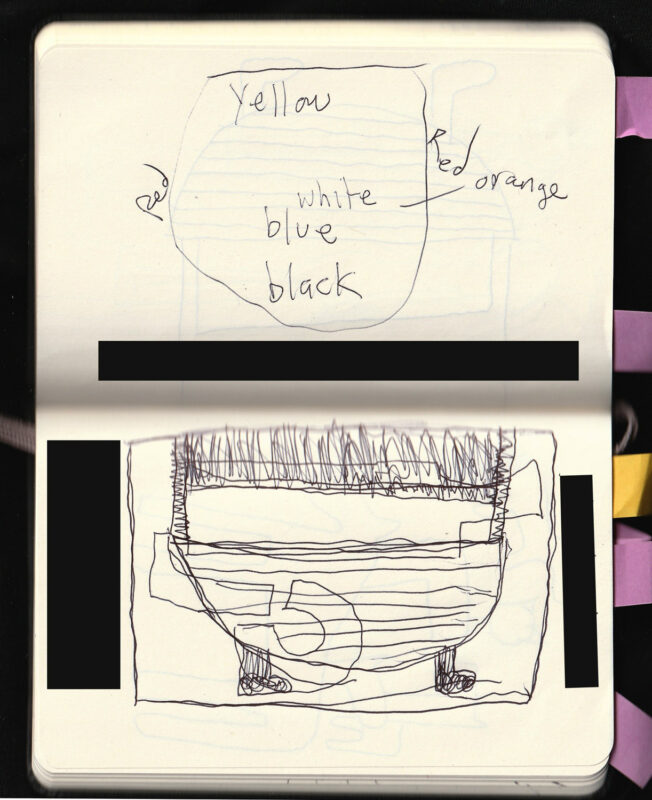 Yellow
Red
Red
orange
white
blue
black
5